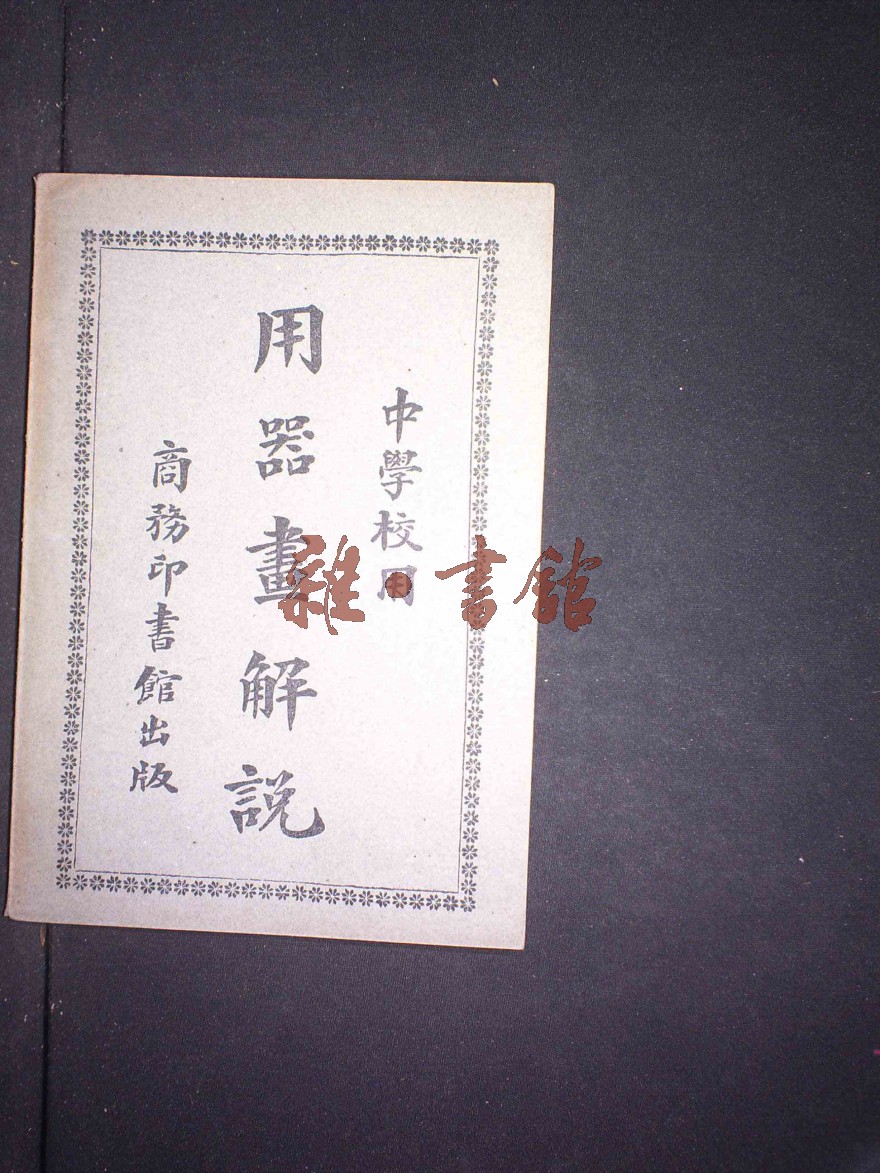 中學校用
用器畫解説
商務印書館出版
雜·書館